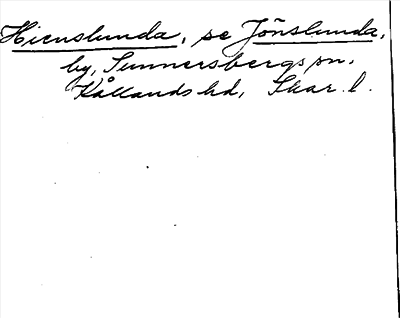 Hienslunda, se Jönslunda,
by, Sunnersbergs sn,
Kållands hd, Skar. l.